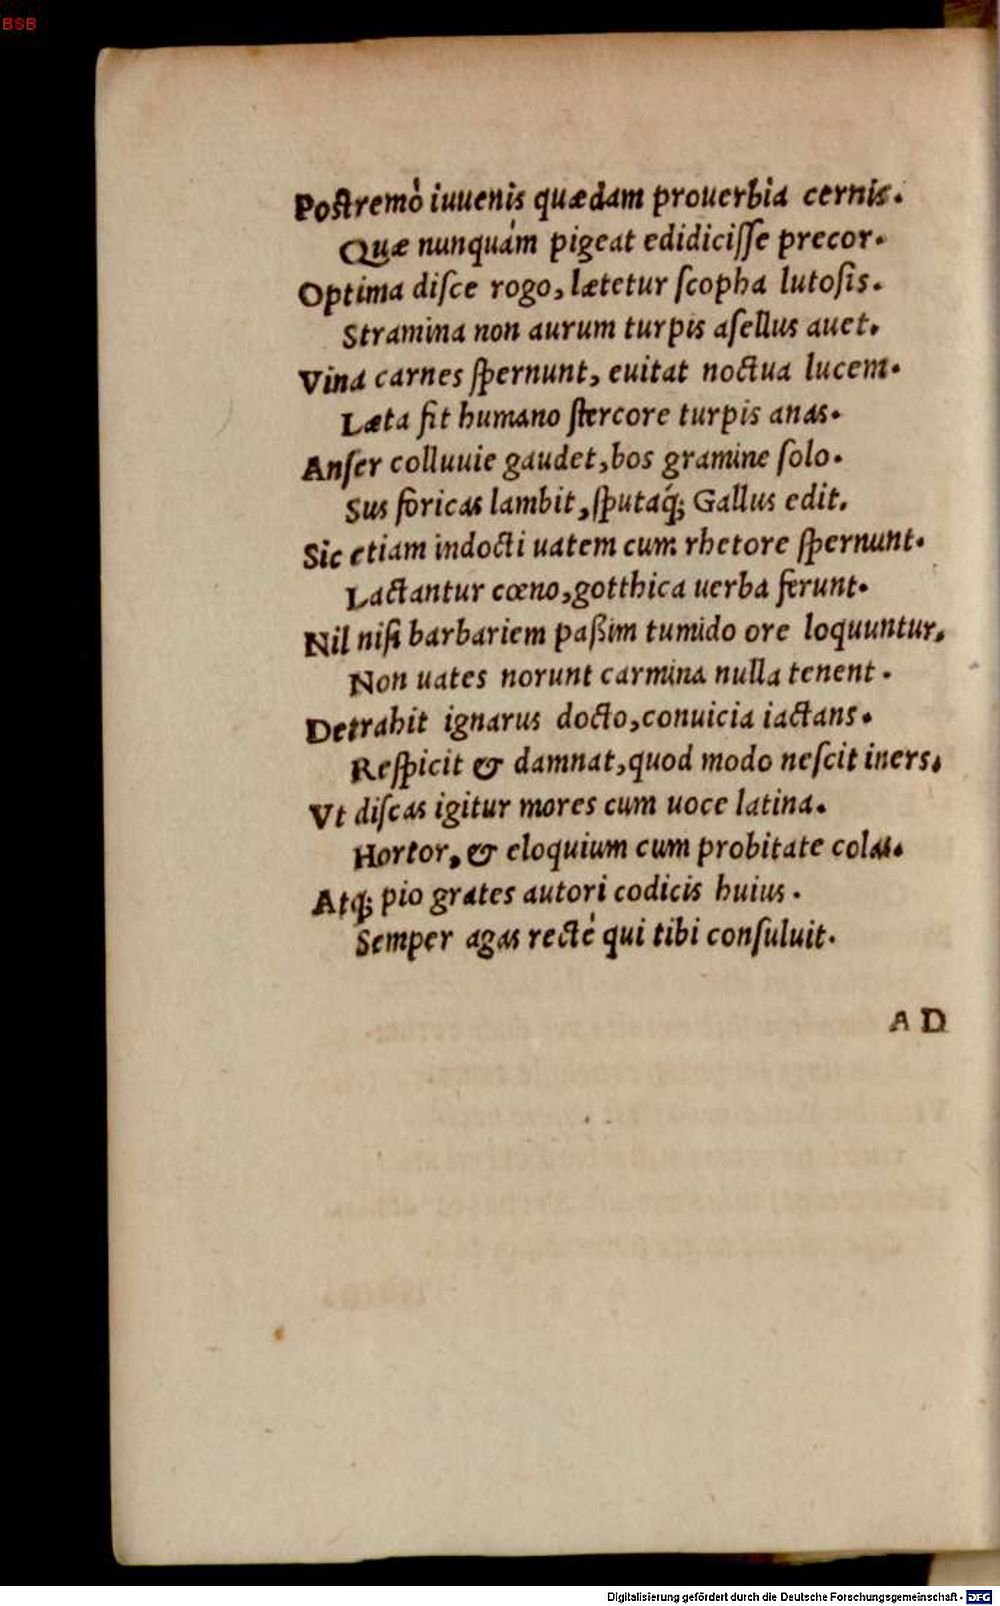 BSB
Postremò iuuenis quædam prouerbia cernis.
Quæ nunquám pigeat edidicisse precor.
Optima disce rogo, lætetur scopha lutosis.
Stramina non aurum turpis asellus auet.
Vina carnes spernunt, euitat noctua lucem.
Læta fit humano stercore turpis anas.
Anser colluuie gaudet, bos gramine solo.
Sus foricas lambit, sputaq́; Gallus edit.
Sic etiam indocti uatem cum rhetore spernunt.
Lactantur cœno, gotthica uerba ferunt.
Nil nisi barbariem paßim tumido ore loquuntur,
Non uates norunt carmina nulla tenent.
Detrahit ignarus docto, conuicia iactans.
Respicit & damnat, quod modo nescit iners,
Vt discas igitur mores cum uoce latina.
Hortor, & eloquium cum probitate colas.
Atq; pio grates autori codicis huius.
Semper agas recté qui tibi consuluit.
AD
Digitalisierung gefördert durch die Deutsche Forschungsgemeinschaft - DFG